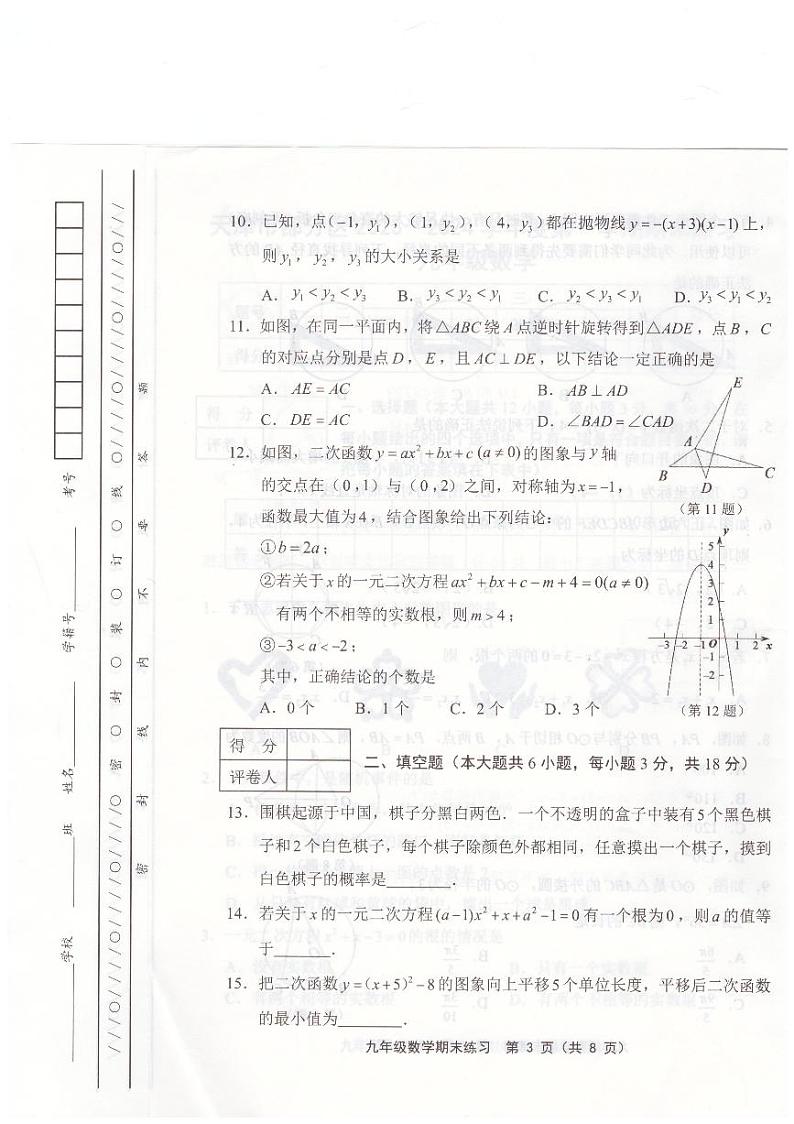 10. 已知,点(−1, y₁),(1, y₂),(4, y₃)都在抛物线 y=−(x+3)(x−1) 上,
则 y₁,y₂,y₃ 的大小关系是
A. y₁<y₂<y₃ B. y₃<y₂<y₁ C. y₂<y₃<y₁ D. y₃<y₁<y₂
11. 如图,在同一平面内,将△ABC 绕 A 点逆时针旋转得到△ADE,点 B,C
的对应点分别是点 D,E,且 AC⊥DE,以下结论一定正确的是
A. AE=AC B. AB⊥AD
C. DE=AC D. ∠BAD=∠CAD
E
A
B
D
C
(第 11 题)
12. 如图,二次函数 y=ax²+bx+c (a≠0) 的图象与 y 轴
的交点在(0,1)与(0,2)之间,对称轴为 x=−1,
函数最大值为4,结合图象给出下列结论:
①b=2a;
②若关于 x 的一元二次方程 ax²+bx+c−m+4=0(a≠0)
有两个不相等的实数根,则 m>4;
③−3<a<−2;
其中,正确结论的个数是
A. 0 个 B. 1 个 C. 2 个 D. 3 个
y
5
4
3
2
1
−3 −2 −1 O 1 2 x
−1
−2
(第 12 题)
得 分
评卷人
二、填空题(本大题共 6 小题,每小题 3 分,共 18 分)
13. 围棋起源于中国,棋子分黑白两色.一个不透明的盒子中装有5个黑色棋
子和2个白色棋子,每个棋子除颜色外都相同,任意摸出一个棋子,摸到
白色棋子的概率是______.
14. 若关于 x 的一元二次方程 (a−1)x²+x+a²−1=0 有一个根为0,则 a 的值等
于______.
15. 把二次函数 y=(x+5)²−8 的图象向上平移5个单位长度,平移后二次函数
的最小值为______.
九年级数学期末练习 第 3 页(共 8 页)
学校 班 姓名 学籍号 考号
密 封 线 内 不 要 答 题
///○///○///○ 密 ○ 封 ○ 装 ○ 订 ○ 线 ○///○///○///